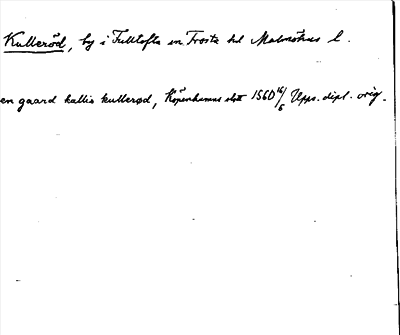 Kulleröd, by i Fulltofta sn Frosta hd Malmöhus l.
en gaard kallis kullerød, Köpenhamns slott 1560 16/5 Upps. dipl. orig.